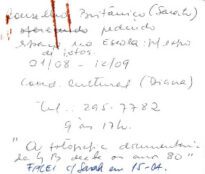 Conselho Britânico (Sarah)
oferecendo pedindo
espaço na Escola p/ expo
de fotos.
01/08 - 10/09
Coord. Cultural (Diana)
Tel.: 295-7782
9 às 17h.
"A fotografia documentária
da GB desde os anos 80"
FALEI c/ Sarah em 15-04.